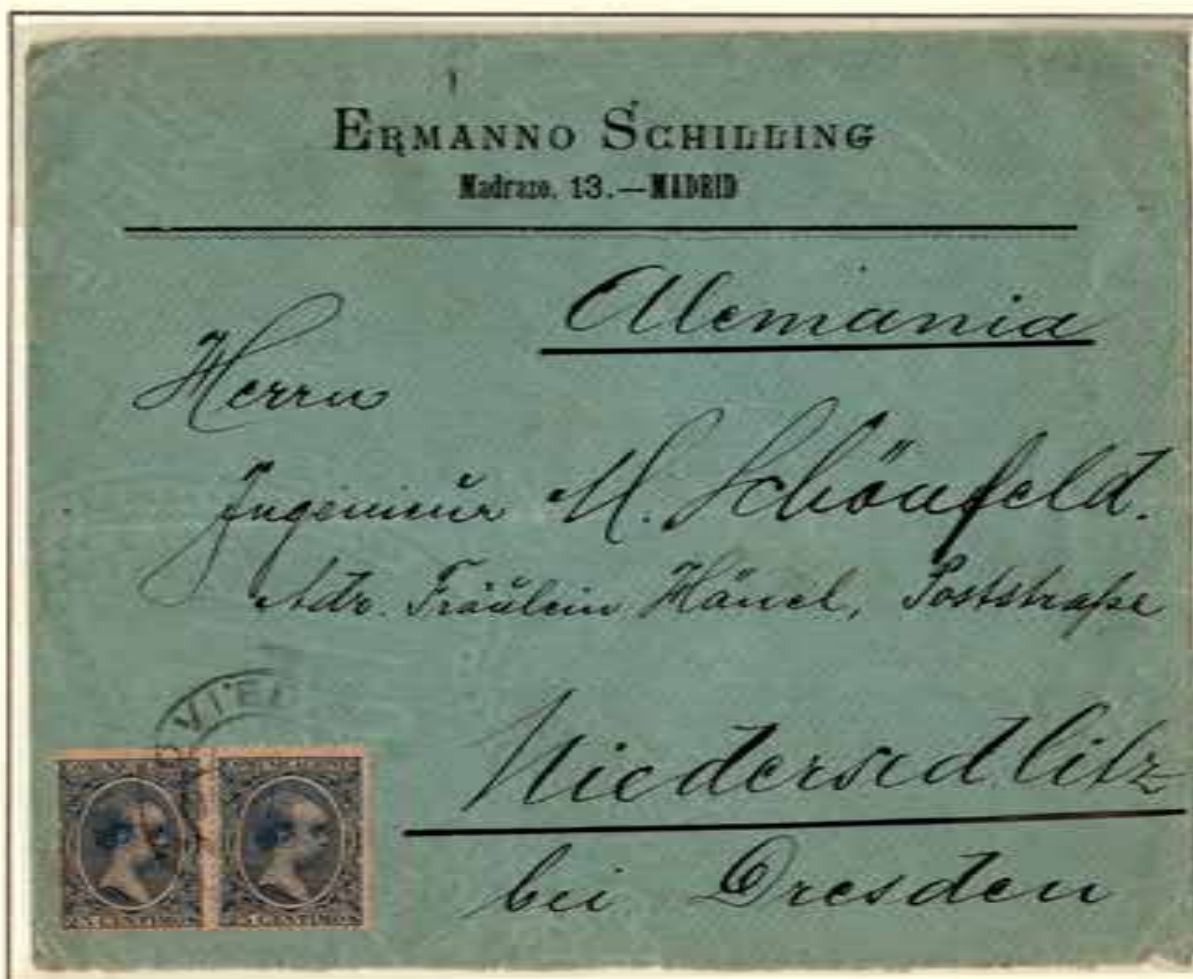 ERMANNO SCHILLING
Madrazo, 13.—MADRID
Alemania
Herrn
Ingenieur M. Schönfeld.
Adr. Fräulein Hänel, Poststraße
Niedersedlitz
bei Dresden
VIED
25 CENTIMOS 25 CENTIMOS